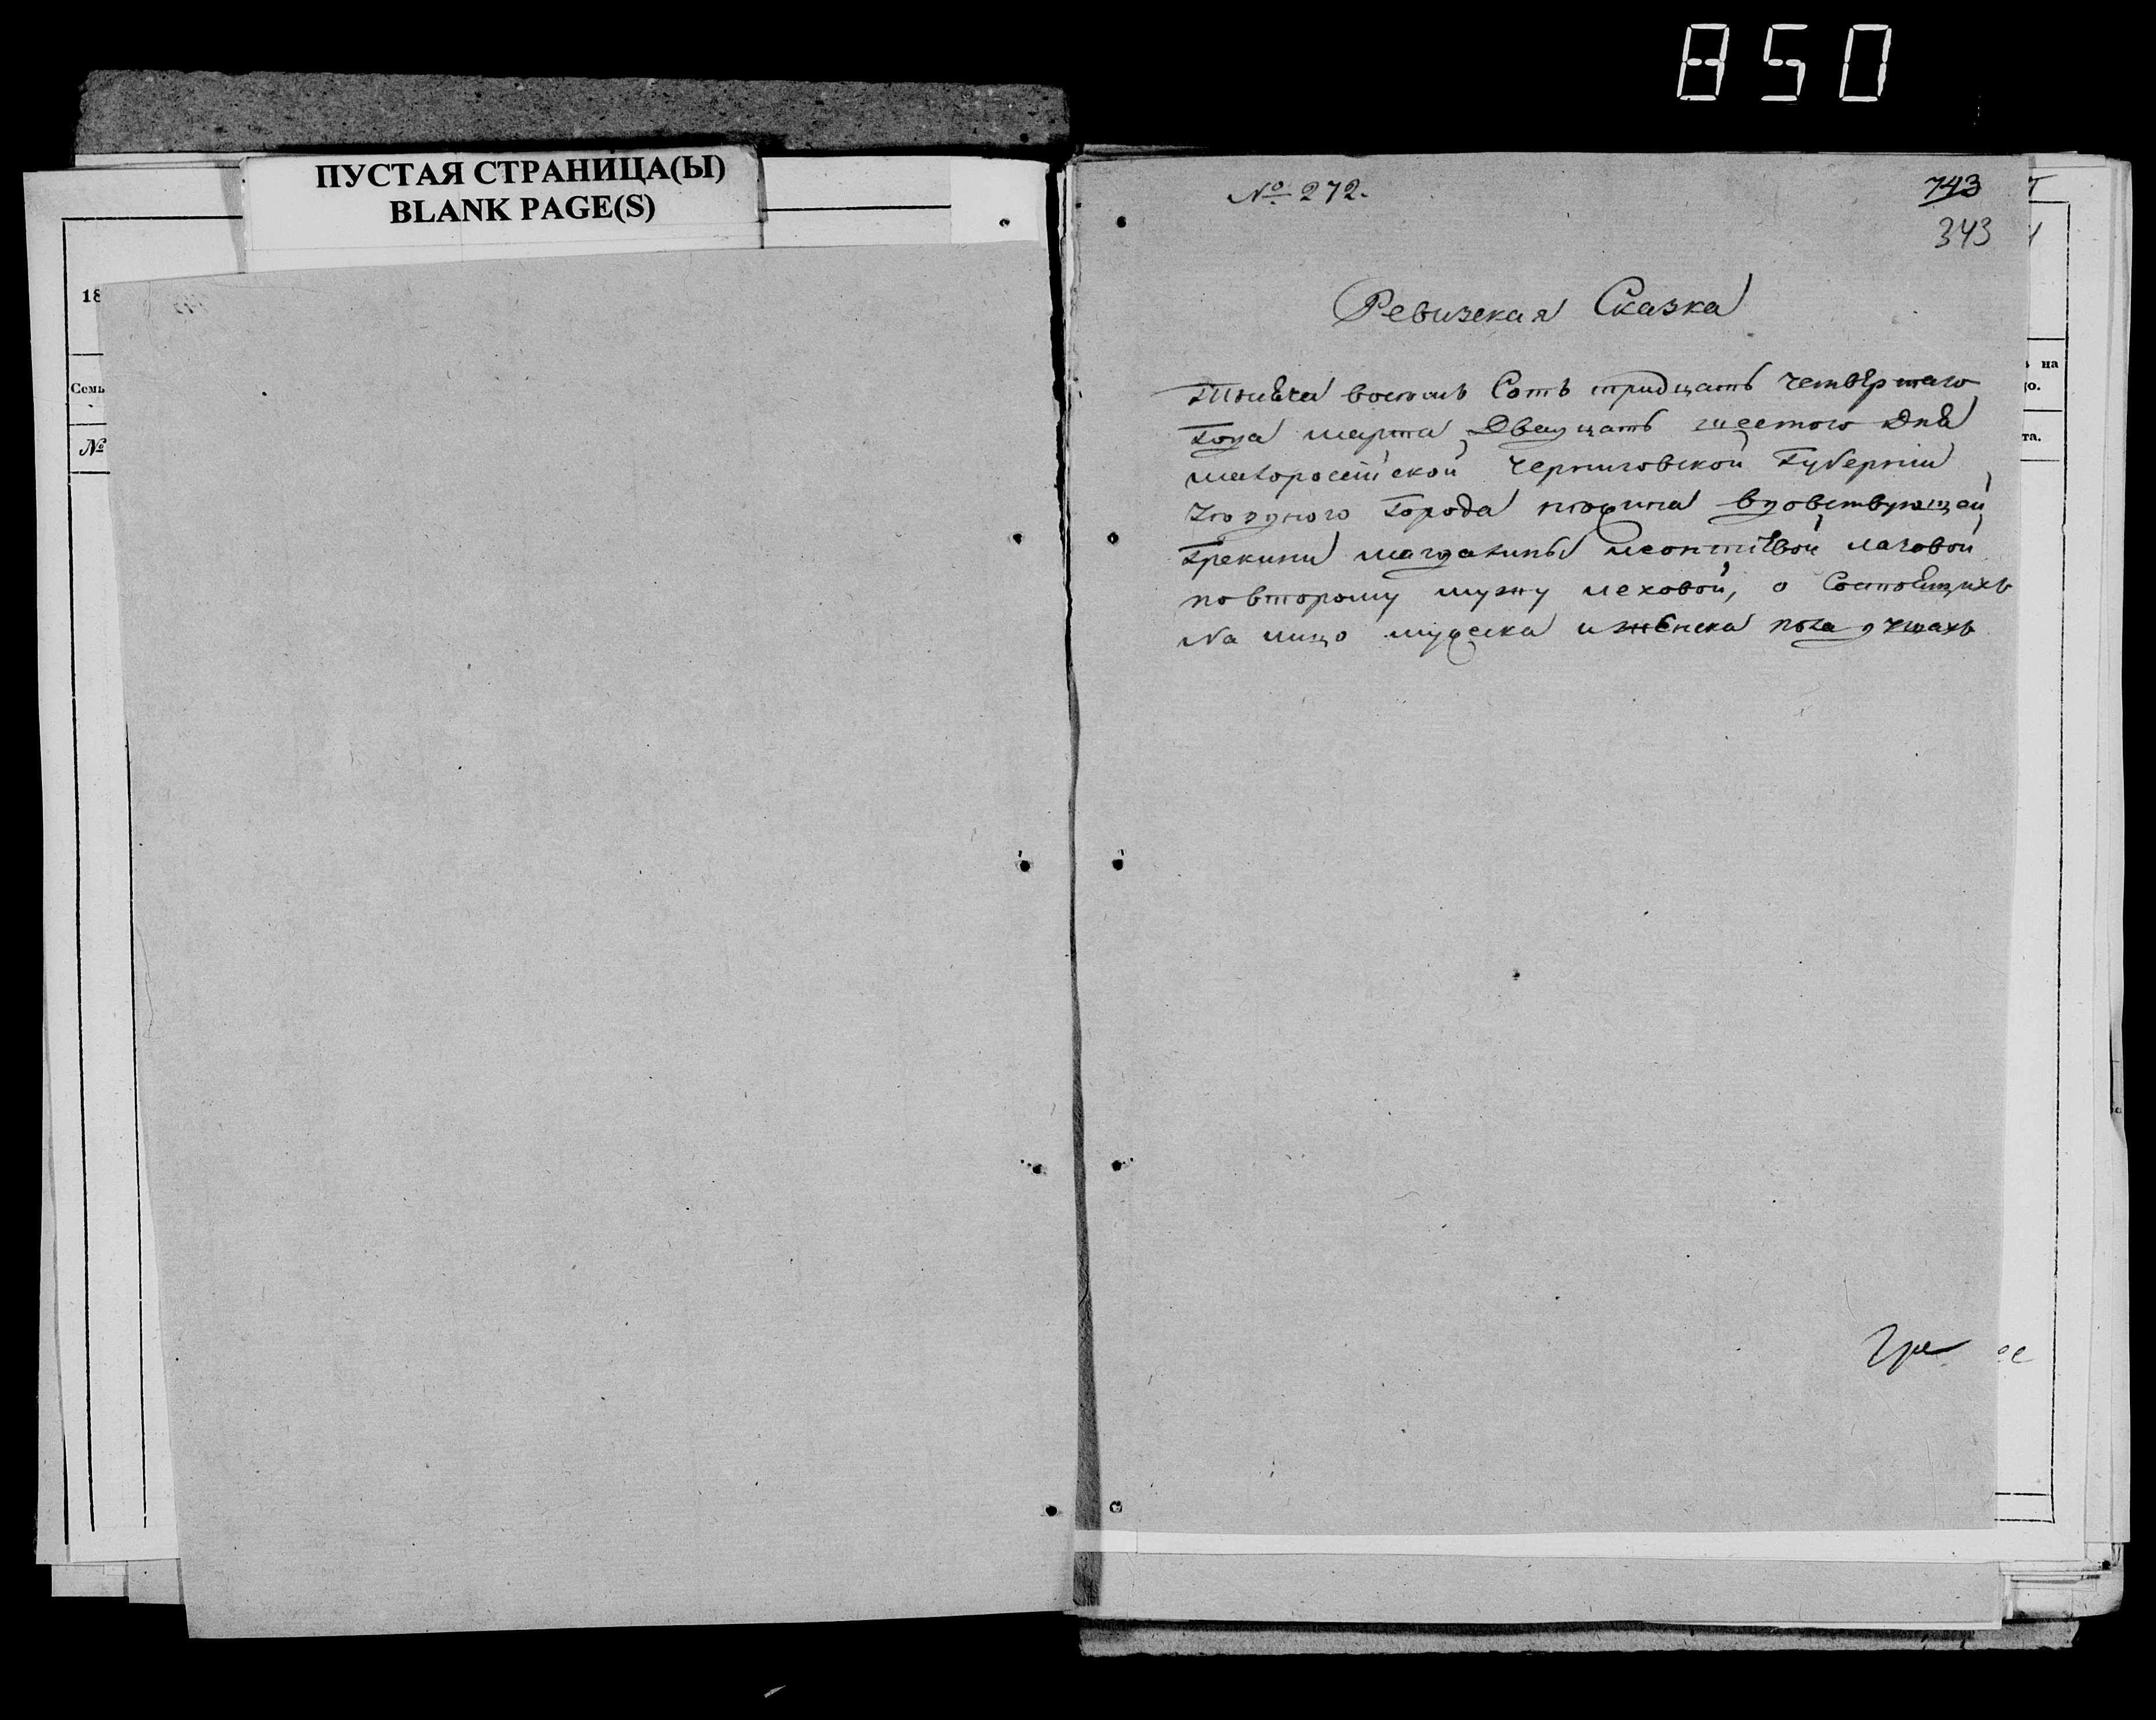 850
ПУСТАЯ СТРАНИЦА(Ы)
BLANK PAGE(S)
18
Семь
№
№ 272.
743
343
Ревизская Сказка
Тысяча восемь Сотъ тридцать четвертаго
Года марта Двадцать шестого дня
малоросейской черниговской Губернии
Города нѣжина вдовствующей
Грекини магдалины леонтіевой
по второму мужу леховой, о Состоящихъ
На лицо мужеска и женска пола душахъ
на
ю.
та.
Гре